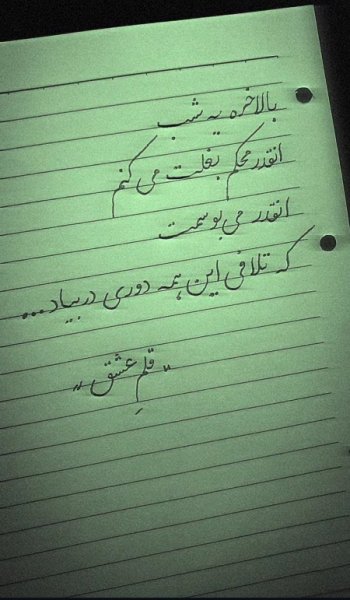 بالاخره یه شب
انقدر محکم بغلت می کنم
انقدر می بوسمت
که تلافی این همه دوری دربیاد...
"قلمِ عشق"